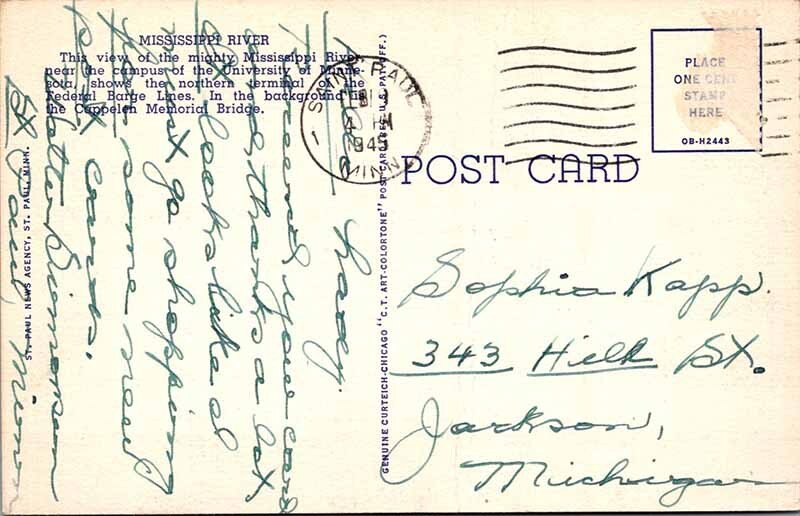 MISSISSIPPI RIVER
This view of the mighty Mississippi River
near the campus of the University of Minne-
sota, shows the northern terminal of the
Federal Barge Lines. In the background is
the Cappelen Memorial Bridge.
ST. PAUL NEWS AGENCY, ST. PAUL, MINN.
Lady.
I received your card
and thanks a lot,
looks like I
must go shopping
for some new
post cards.
Walter
St. Paul, Minn
GENUINE CURTEICH-CHICAGO "C.T. ART-COLORTONE" POST CARD (REG. U.S. PAT. OFF.)
SAINT PAUL
FEB
4 PM
194
MINN.
PLACE
ONE CENT
STAMP
HERE
OB-H2443
POST CARD
Sophia Kapp.
343 Hill St.
Jackson,
Michigan